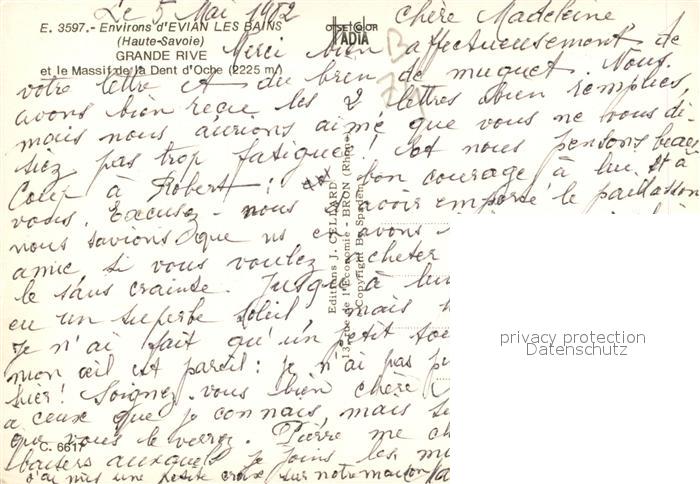 Le 5 Mai 1982 Chère Madeleine
E. 3597.- Environs d'EVIAN LES BAINS
(Haute-Savoie)
GRANDE RIVE
et le Massif de la Dent d'Oche (2225 m)
OFFSETCOLOR
IADIA
Merci bien affectueusement de
votre lettre et du brin de muguet. Nous
avons bien reçu les 2 lettres bien remplies,
mais nous aurions aimé que vous ne vous
pas trop fatiguée! et nous pensons beau
coup à Robert! bon courage à lui et à
vous. Excusez-nous avoir emporté le paillasson
nous savions que avons
amie si vous voulez acheter
le sans crainte. Jusqu'à
eu un superbe soleil, mais
je n'ai fait qu'un petit
mon œil est pareil: je n'ai pas
Soignez vous bien chère
à ceux que je connais, mais
que vous le verrez. Pierre me
baisers auxquels je joins les
j'ai mis une petite croix sur notre maison
Editions J. CELLARD
13, rue de l'Economie - BRON (Rhône)
Copyright By Spadem
C. 6617
privacy protection
Datenschutz